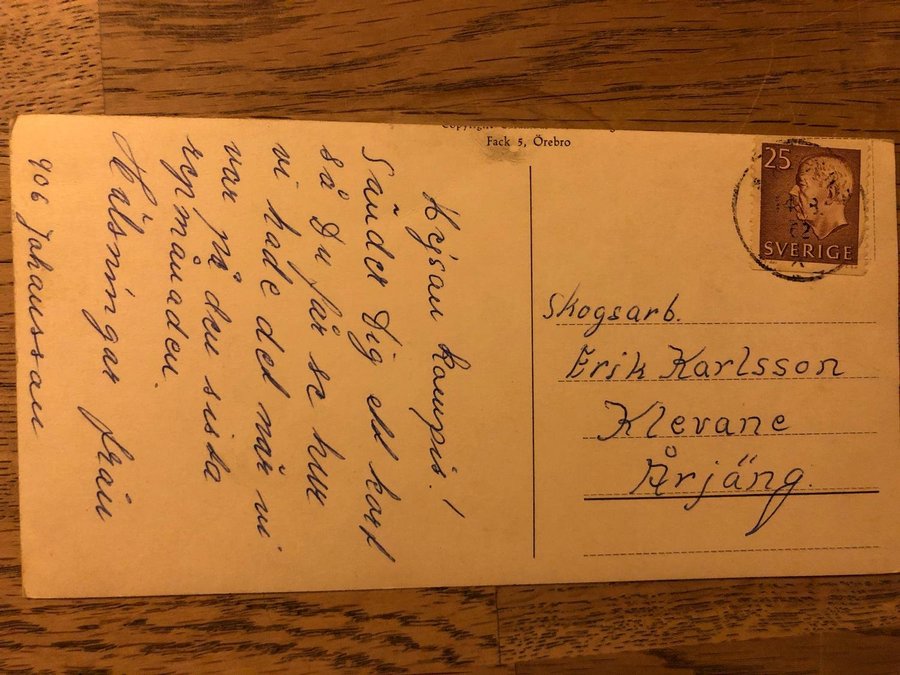 Fack 5, Örebro
25
SVERIGE
62
Skogsarb.
Erik Karlsson
Klevane
Årjäng.
Hejsan kompis!
Sänder Dig ett kort
så Du får se hur
vi hade det när vi
var på den sista
repmånaden.
Hälsningar från
906 Johansson